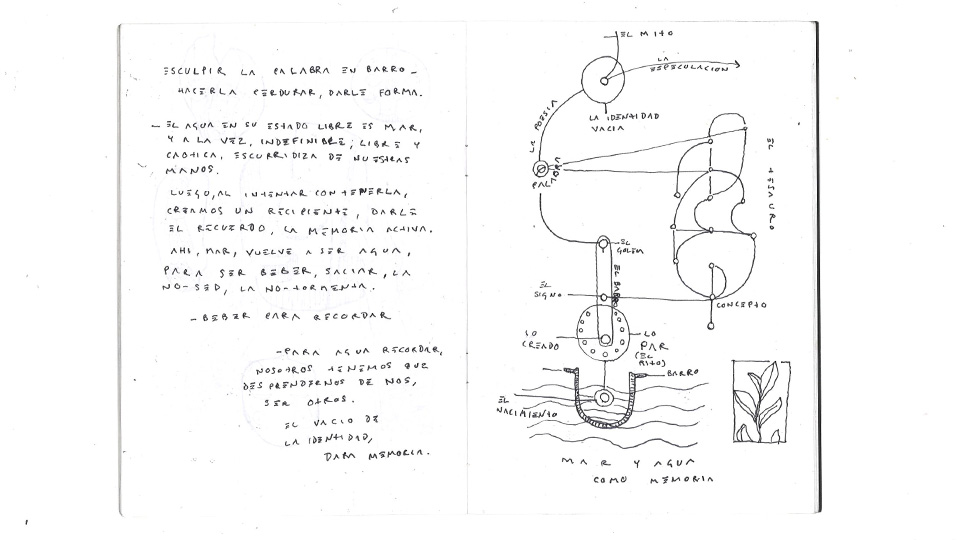 ESCULPIR LA PALABRA EN BARRO -
HACERLA PERDURAR, DARLE FORMA.
- EL AGUA EN SU ESTADO LIBRE ES MAR,
Y A LA VEZ, INDEFINIBLE, LIBRE Y
CAOTICA, ESCURRIDIZA DE NUESTRAS
MANOS.
LUEGO, AL INTENTAR CONTENERLA,
CREAMOS UN RECIPIENTE, DARLE
EL RECUERDO, LA MEMORIA ACTIVA.
AHI, MAR, VUELVE A SER AGUA,
PARA SER BEBER, SACIAR, LA
NO-SED, LA NO-TORMENTA.
- BEBER PARA RECORDAR
- PARA AGUA RECORDAR,
NOSOTROS TENEMOS QUE
DESPRENDERNOS DE NOS,
SER OTROS.
EL VACIO DE
LA IDENTIDAD,
DARA MEMORIA.
EL MITO
LA
ESPECULACION
LA IDENTIDAD
VACIA
LA POESIA
PALABRA
EL TESAURO
EL
GOLEM
EL BARRO
EL
SIGNO
CONCEPTO
LO
CREADO
LO
PAR
(EL
RITO)
BARRO
EL
NACIMIENTO
MAR Y AGUA
COMO MEMORIA